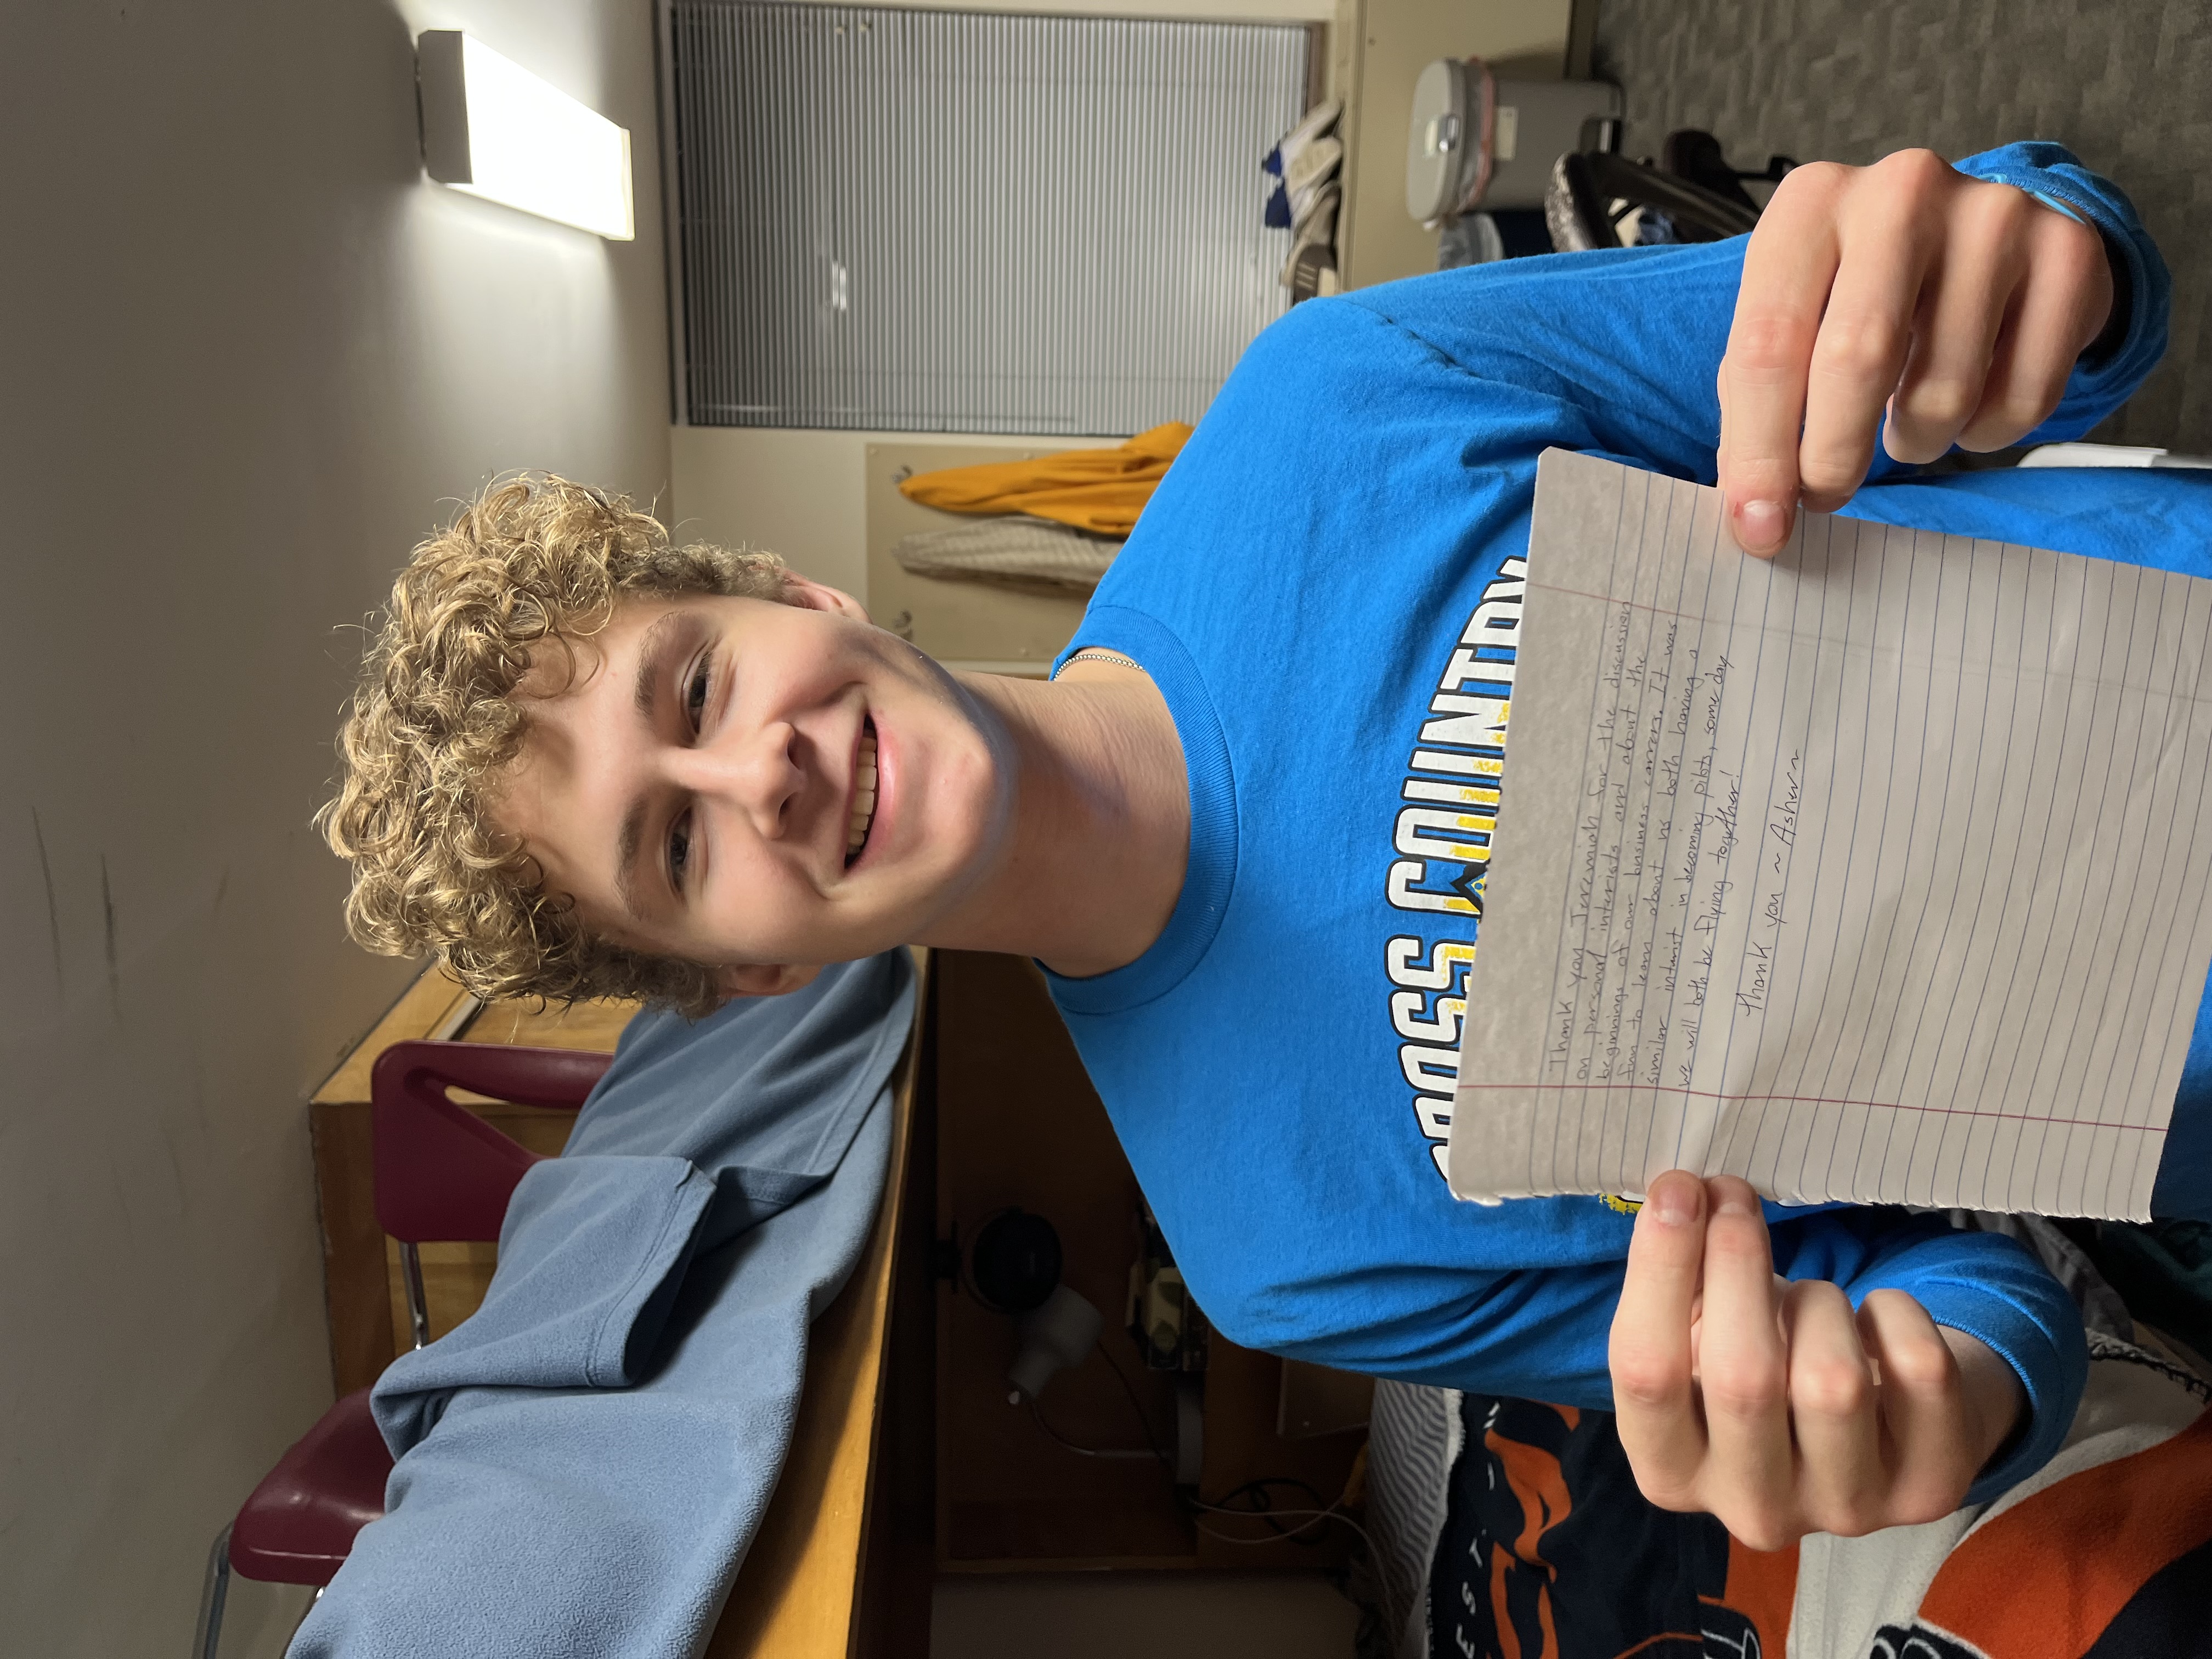 CROSS COUNTRY
EST.
Thank you Jeremiah for the discussion
on personal interists and about the
beginnings of our business carrers. It was
fun to learn about us both having a
similar interist in becoming pilots, some day
we will both be flying together!
Thank you ~ Asher ~